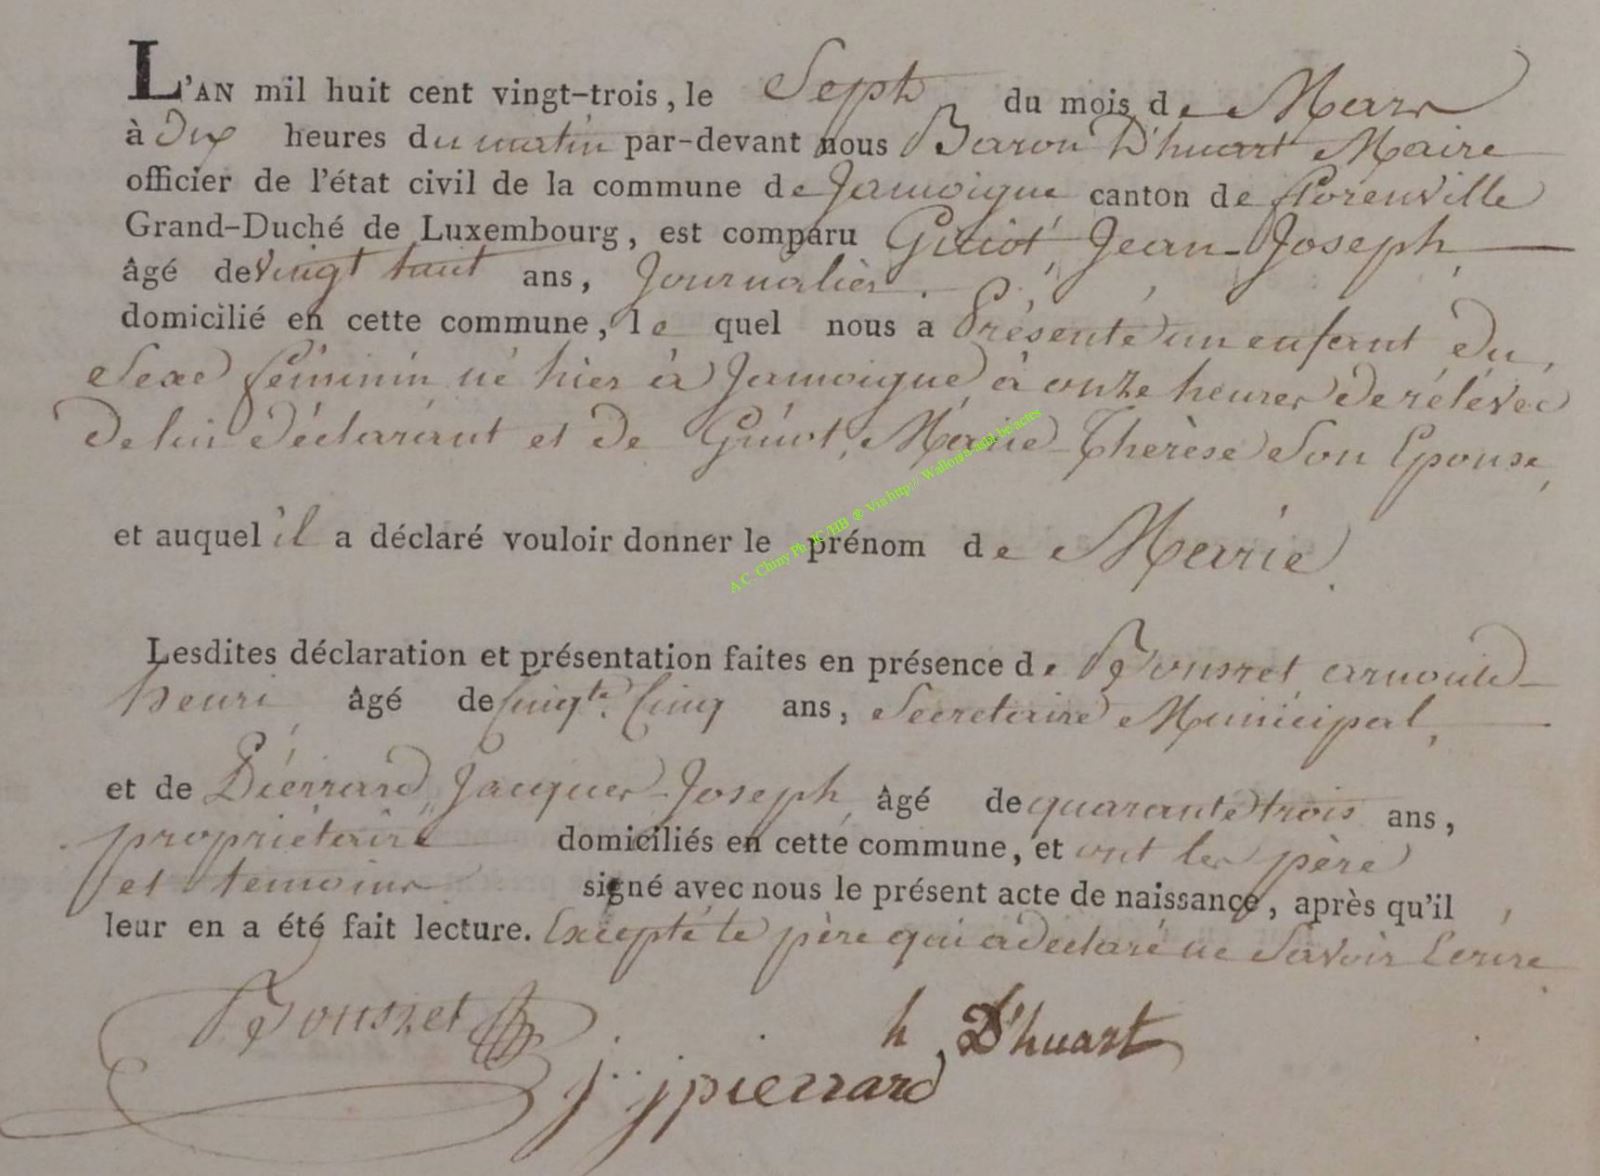 L'AN mil huit cent vingt-trois, le Sept du mois de Mars
à Dix heures du matin par-devant nous Baron D'huart Maire
officier de l'état civil de la commune de Jamoigne canton de florenville
Grand-Duché de Luxembourg, est comparu Guiot, Jean-Joseph,
âgé de vingt huit ans, Journalier.
domicilié en cette commune, le quel nous a Présenté un enfant du
Sexe féminin né hier à Jamoigne à onze heures de rélévée
de lui déclarant et de Guiot, Marie-Thérèse Son Epouse,
et auquel il a déclaré vouloir donner le prénom de Marie.
Lesdites déclaration et présentation faites en présence de arnould
henri, âgé de Cinqte. Cinq ans, Secretaire Municipal,
et de Piérrard, Jacques-Joseph, âgé de quarante trois ans,
propriétaire domiciliés en cette commune, et ont les père
et temoins signé avec nous le présent acte de naissance, après qu'il
leur en a été fait lecture. Excepté le père qui a declaré ne Savoir Ecrire.
h D'huart
j. jpierrard
A.C. Chiny Ph JC/HB ® Via http://Wallonia-asbl.be/actes